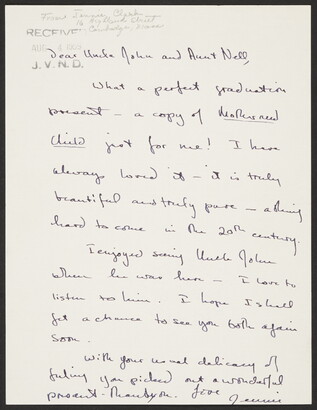 From Jennie Clark
16 Highland Street
Cambridge, Mass
RECEIVE
AUG
J. V. N. D.
Dear Uncle John and Aunt Nell,
What a perfect graduation
present — a copy of Mother and
Child just for me! I have
always loved it — it is truly
beautiful and truly pure — a thing
hard to come in the 20th century.
I enjoyed seeing Uncle John
when he was here — I love to
listen to him. I hope I shall
get a chance to see you both again
soon.
With your usual delicacy of
feeling you picked out a wonderful
present. Thank you. Love
Jennie